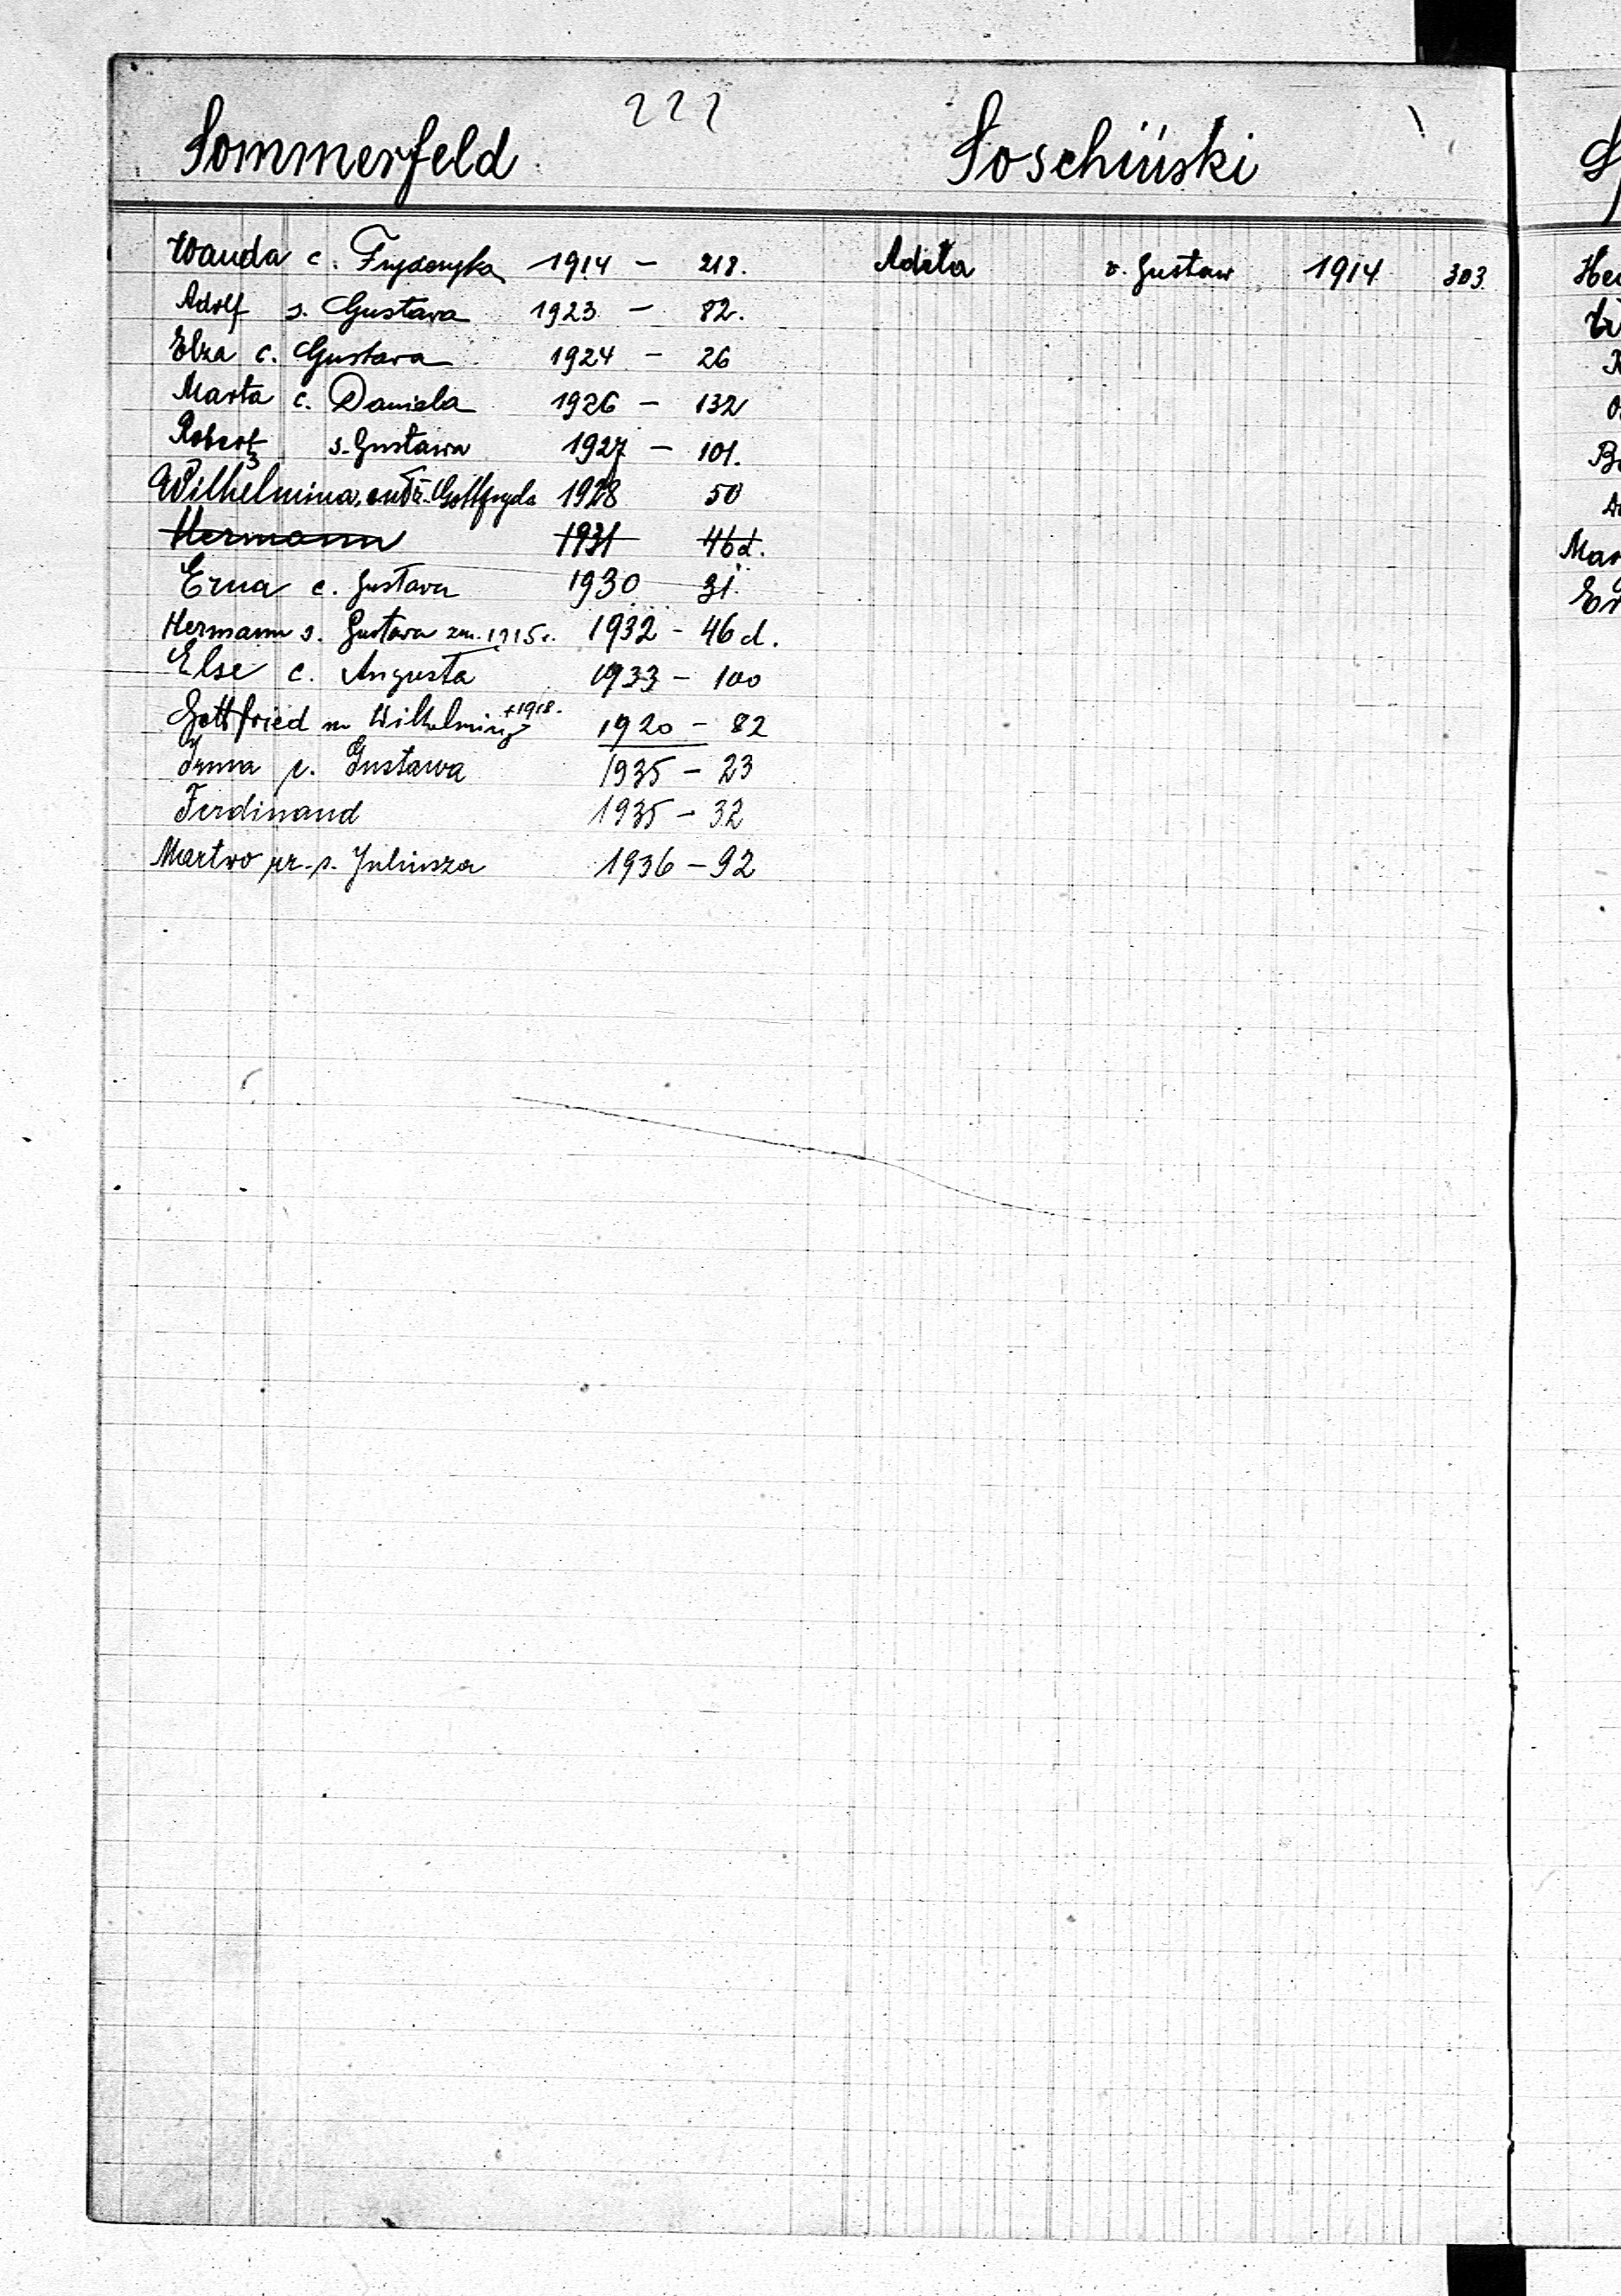 222
Sommerfeld
Wanda c. Fryderyka 1914 - 218.
Adolf s. Gustava 1923 - 82.
Elza c. Gustava 1924 - 26
Marta c. Daniela 1926 - 132
Robert s. Gustawa 1927 - 101.
Wilhelmina, Gottfryda 1928 50
Hermann 1931 46d.
Erna c. Gustava 1930 31.
Hermann s. Gustava zm. 1915 r. 1932 - 46 d.
Else c. Augusta 1933 - 100
Gottfried m Wilhelminy +1918. 1920 - 82
Irma c. Gustawa 1935 - 23
Ferdinand 1935 - 32
Martwo ur. s. Juliusza 1936 - 92
Soschiński
Adela v. Gustaw 1914 303.
Mar